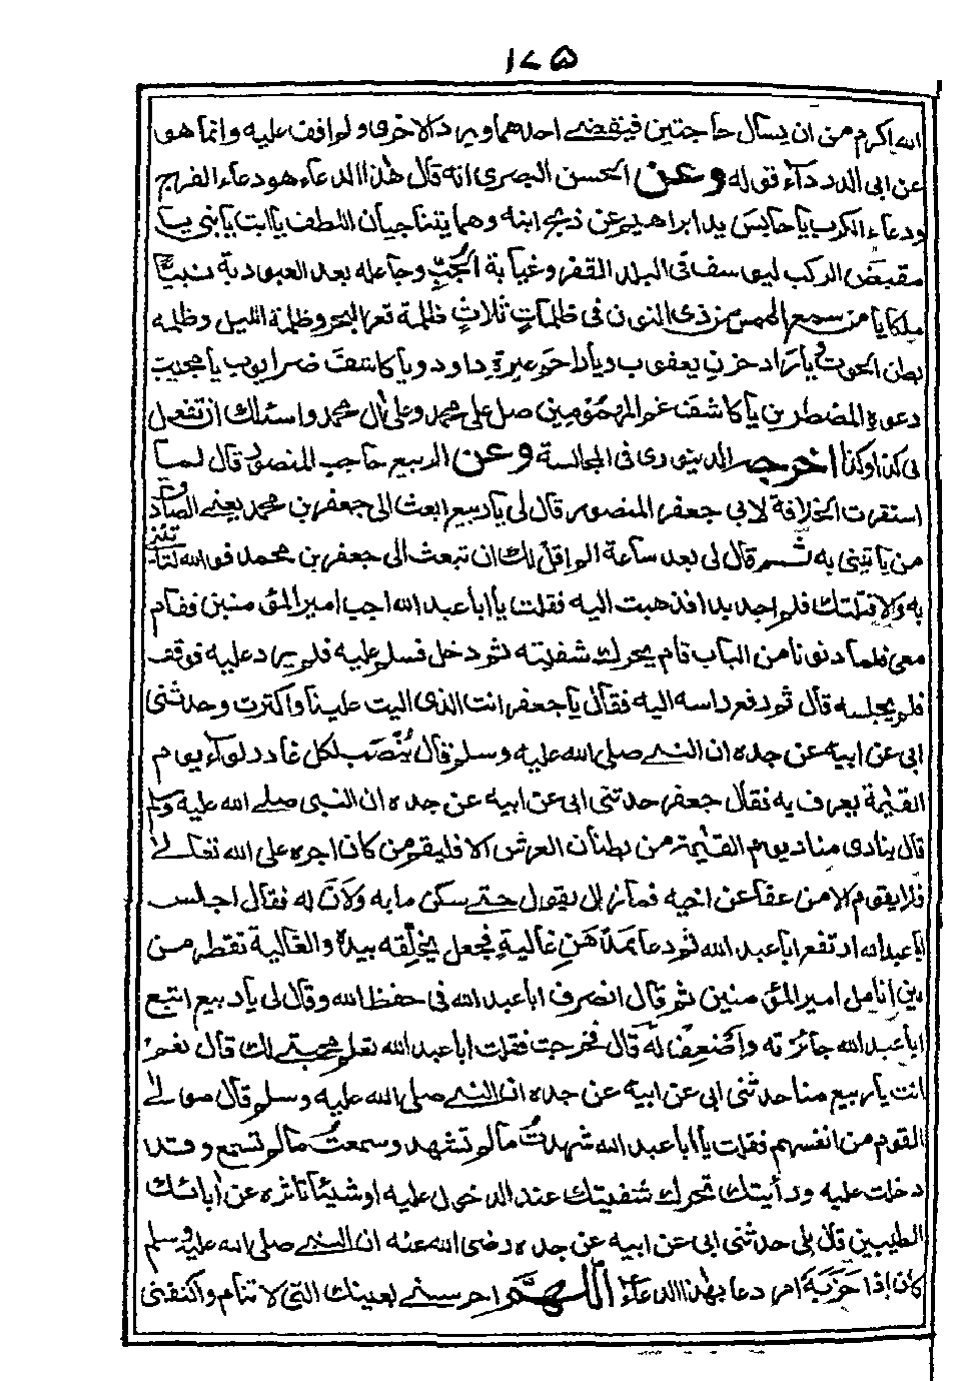 ١٨٥
الله اكرم من ان يسال حاجتين فيقضے احدهما ويرد الاخرى ولو افف عليه وانما هو
عن ابى الدرداء قوله وعن الحسن البصرى انه قال هذا الدعاء هو دعاء الفرج
ودعاء الكرب يا حابس يد ابراهيم عن ذبح ابنه وهما يتناجيان اللطف يا ابت يا بنى يا
مقيض الركب ليوسف فى البلد القفر وغيابة الجب وجاعله بعد العبودية نبيا
ملكا يا من سمع الهمس من ذى النون فى ظلمات ثلاث ظلمة قعر البحر وظلمة الليل وظلمة
بطن الحوت يا راد حزن يعقوب ويا راحم عبرة داود ويا كاشف ضر ايوب يا مجيب
دعوة المضطرين يا كاشف غم المهمومين صل على محمد وعلى ال محمد واسئلك ان تفعل
لى كذا وكذا اخرجه الدينورى فى المجالسة وعن الربيع حاجب المنصور قال لما
استقرت الخلافة لابى جعفر المنصور قال لى يا ربيع ابعث الى جعفر بن محمد يعنے الصادق
من ياتينى به ثم قال لى بعد ساعة الم اقل لك ان تبعث الى جعفر بن محمد فوالله لتاتينى
به والا قتلتك فلم اجد بدا فذهبت اليه فقلت يا ابا عبد الله اجب امير المؤمنين فقام
معى فلما دنونا من الباب قام يحرك شفتيه ثم دخل فسلم عليه فلم يرد عليه فوقف
فلم يجلسه قال ثم رفع راسه اليه فقال يا جعفر انت الذى البت علينا واكثرت وحدثنى
ابى عن ابيه عن جده ان النبے صلى الله عليه وسلم قال ينصب لكل غادر لواء يوم
القيمة يعرف به فقال جعفر حدثنى ابى عن ابيه عن جده ان النبى صلے الله عليه وسلم
قال ينادى مناد يوم القيمة من بطنان العرش الا فليقم من كان اجره على الله تعالے
فلا يقوم الا من عفا عن اخيه فما زال يقول حتے سكن ما به ولان له فقال اجلس
ابا عبد الله ارتفع ابا عبد الله ثم دعا بمدهن غالية فجعل يخلقه بيده والغالية تقطر من
بين انامل امير المؤمنين ثم قال انصرف ابا عبد الله فى حفظ الله وقال لى يا ربيع اتبع
ابا عبد الله جائزته واضعف له قال فخرجت فقلت ابا عبد الله تعلم محبتے لك قال نعم
انت يا ربيع منا حدثنى ابى عن ابيه عن جده ان النبے صلى الله عليه وسلم قال موالے
القوم من انفسهم فقلت يا ابا عبد الله شهدت ما لم تشهد وسمعت ما لم تسمع وقد
دخلت عليه ورأيتك تحرك شفتيك عند الدخول عليه اوشيئا تاثره عن ابائك
الطيبين قال بلى حدثنى ابى عن ابيه عن جده رضى الله عنه ان النبے صلى الله عليه وسلم
كان اذا حزبه امر دعا بهذا الدعاء اللهم احرسنے بعينك التى لا تنام واكنفنى